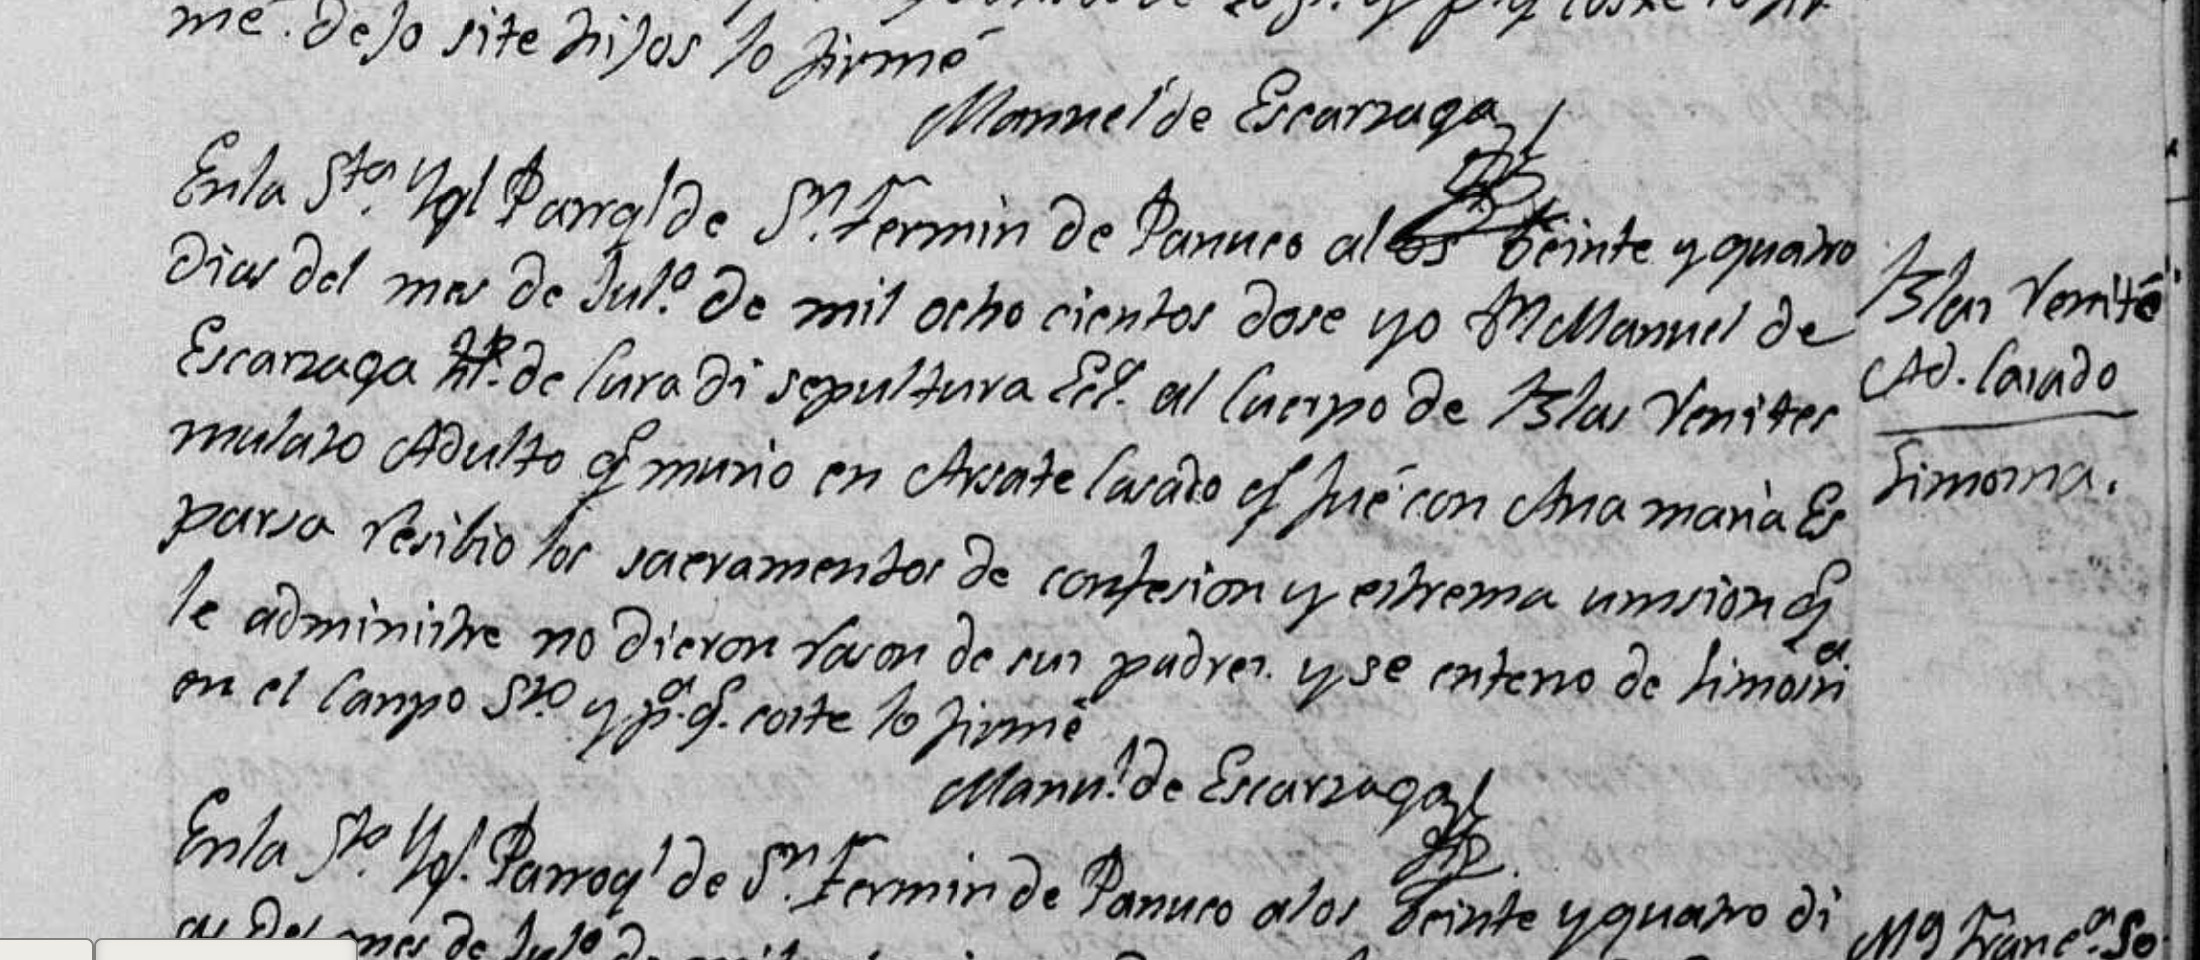 mé. dejo site hijos lo firmé
Manuel de Escarzaga
En la Sta. Ygl Parrql de Sn. Fermin de Panuco a los beinte y quatro
dias del mes de Jul.o de mil ocho cientos dose yo Dn Manuel de
Escarzaga tte. de Cura di sepultura Ecl.a al Cuerpo de Blas Venites
mulato Adulto q.e murio en Arsate Casado q.e fué con Ana maria Es
parsa resibio los sacramentos de confesion y estrema unsion q.e
le administre no dieron rason de sus padres. y se enterro de limosn.a
en el Canpo Sto. y p.a q.e coste lo firmé
Manu.l de Escarzaga
En la Sta. Ygl. Parroq.l de Sn. Fermin de Panuco a los beinte y quatro di
as del mes de Jul.o de
Blas Venité
Ad. Casado
Limosna.
Ma Franc.a So